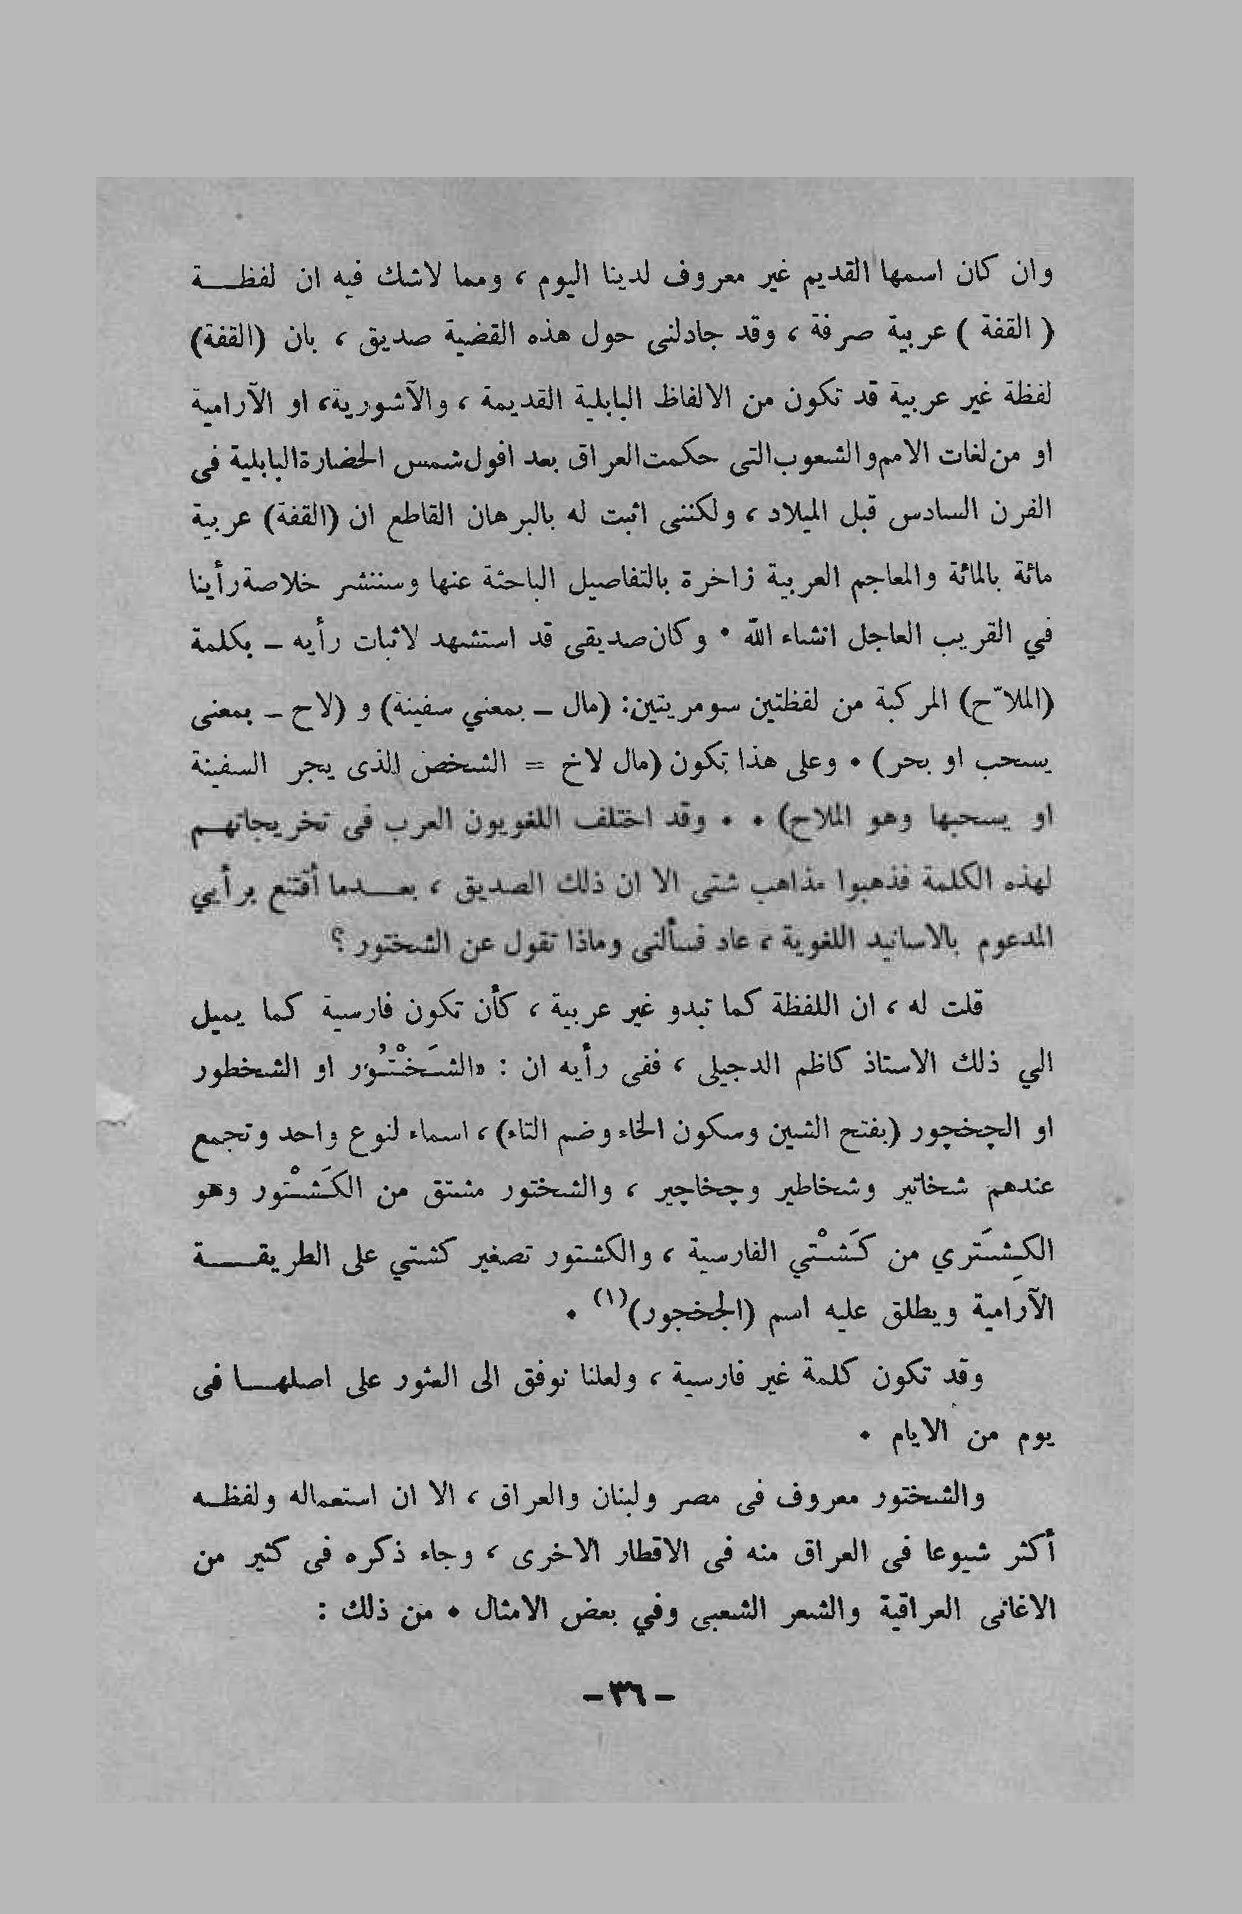 وان كان اسمها القديم غير معروف لدينا اليوم ، ومما لاشك فيه ان لفظـــة
( القفة ) عربية صرفة ، وقد جادلنى حول هذه القضية صديق ، بان (القفة)
لفظة غير عربية قد تكون من الالفاظ البابلية القديمة ، والآشورية، او الآرامية
او من لغات الامم والشعوب التى حكمت العراق بعد افول شمس الحضارة البابلية فى
الفرن السادس قبل الميلاد ، ولكننى اثبت له بالبرهان القاطع ان (القفة) عربية
مائة بالمائة والمعاجم العربية زاخرة بالتفاصيل الباحثة عنها وسننشر خلاصة رأينا
في القريب العاجل انشاء الله • وكان صديقى قد استشهد لاثبات رأيه – بكلمة
(الملاّح) المركبة من لفظتين سومريتين: (مال – بمعني سفينة) و (لاح – بمعنى
يسحب او بحر) • وعلى هذا تكون (مال لاخ = الشخص الذى يجر السفينة
او يسحبها وهو الملاح) • • وقد اختلف اللغويون العرب فى تخريجاتهـم
لهذه الكلمة فذهبوا مذاهب شتى الا ان ذلك الصديق ، بعـــدما أقتنع برأيي
المدعوم بالاسانيد اللغوية ، عاد فسألنى وماذا تقول عن الشختور ؟
قلت له ، ان اللفظة كما تبدو غير عربية ، كأن تكون فارسية كما يميل
الي ذلك الاستاذ كاظم الدجيلى ، ففى رأيه ان : «الشَـخْتُـوْر او الشخطور
او الچخچور (بفتح الشين وسكون الخاء وضم التاء) ، اسماء لنوع واحد وتجمع
عندهم شخاتير وشخاطير وچخاچير ، والشختور مشتق من الكَـشْـتور وهو
الكِـشَـتري من كَـشْـتي الفارسية ، والكشتور تصغير كشتي على الطريقـــة
الآرامية ويطلق عليه اسم (الجخجور)(١) •
وقد تكون كلمة غير فارسية ، ولعلنا نوفق الى العثور على اصلهـــا فى
يوم من الايام •
والشختور معروف فى مصر ولبنان والعراق ، الا ان استعماله ولفظـه
أكثر شيوعا فى العراق منه فى الاقطار الاخرى ، وجاء ذكره فى كثير من
الاغانى العراقية والشعر الشعبى وفي بعض الامثال • من ذلك :
– ٣٦ –